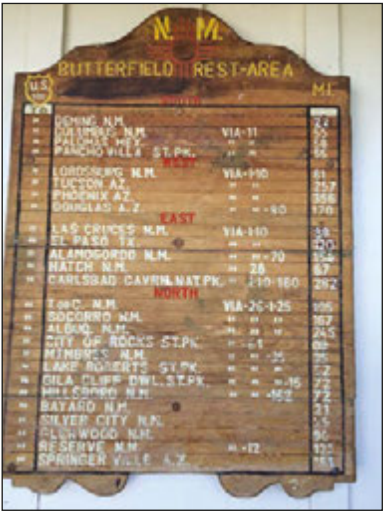 N. M.
BUTTERFIELD REST-AREA
U.S. MI.
TO
SOUTH
" DEMING N.M. 22
" COLUMBUS N.M. VIA-11
" PALOMAS MEX. " "
" PANCHO VILLA ST.PK. " "
WEST
" LORDSBURG N.M. VIA-I-10 81
" TUCSON AZ. " " 257
" PHOENIX AZ. " " 356
" DOUGLAS A.Z. " " -80 170
EAST
" LAS CRUCES N.M. VIA-I-10
" EL PASO TX. " "
" ALAMOGORDO N.M. " " -70
" HATCH N.M. " 26 67
" CARLSBAD CAVRN. NAT.PK. " I-10-180 282
NORTH
" T or C. N.M. VIA-26-I-25
" SOCORRO N.M. " " " 167
" ALBUQ. N.M. " " " 245
" CITY OF ROCKS ST.PK. " -61
" MIMBRES N.M. " " -35
" LAKE ROBERTS ST.PK. " " "
" GILA CLIFF DWL.ST.PK. " " " -15 72
" HILLSBORO N.M. " " -152 72
" BAYARD N.M.
" SILVER CITY N.M.
" GLENWOOD N.M.
" RESERVE N.M. " -12
" SPRINGER VILLE A.Z. "